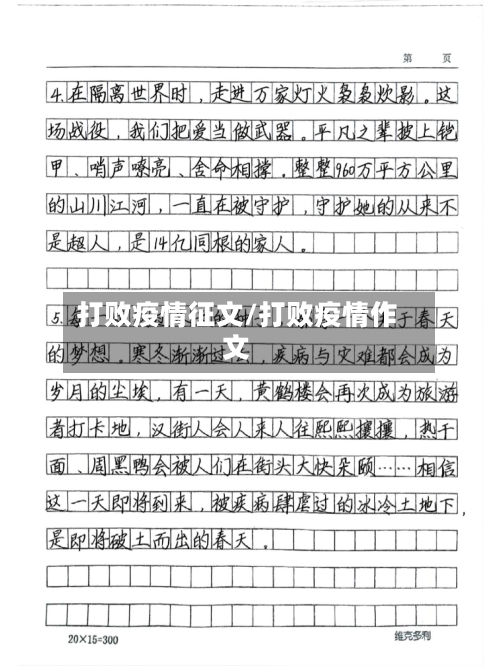 第 页
4.在隔离世界时，走进万家灯火袅袅炊影。这
场战役，我们把爱当做武器。平凡之辈披上铠
甲、哨声嘹亮、舍命相撑。整整960万平方公里
的山川江河，一直在被守护，守护她的从来不
是超人，是14亿同根的家人。
打败疫情征文/打败疫情作
文
5.每
于春天
的梦想。寒冬渐渐过
，疾病与灾难都会成为
岁月的尘埃，有一天，黄鹤楼会再次成为旅游
者打卡地，汉街人会人来人往熙熙攘攘，热干
面、周黑鸭会被人们在街头大快朵颐……相信
这一天即将到来，被疾病肆虐过的冰冷土地下，
是即将破土而出的春天。
20×15=300
维克多利